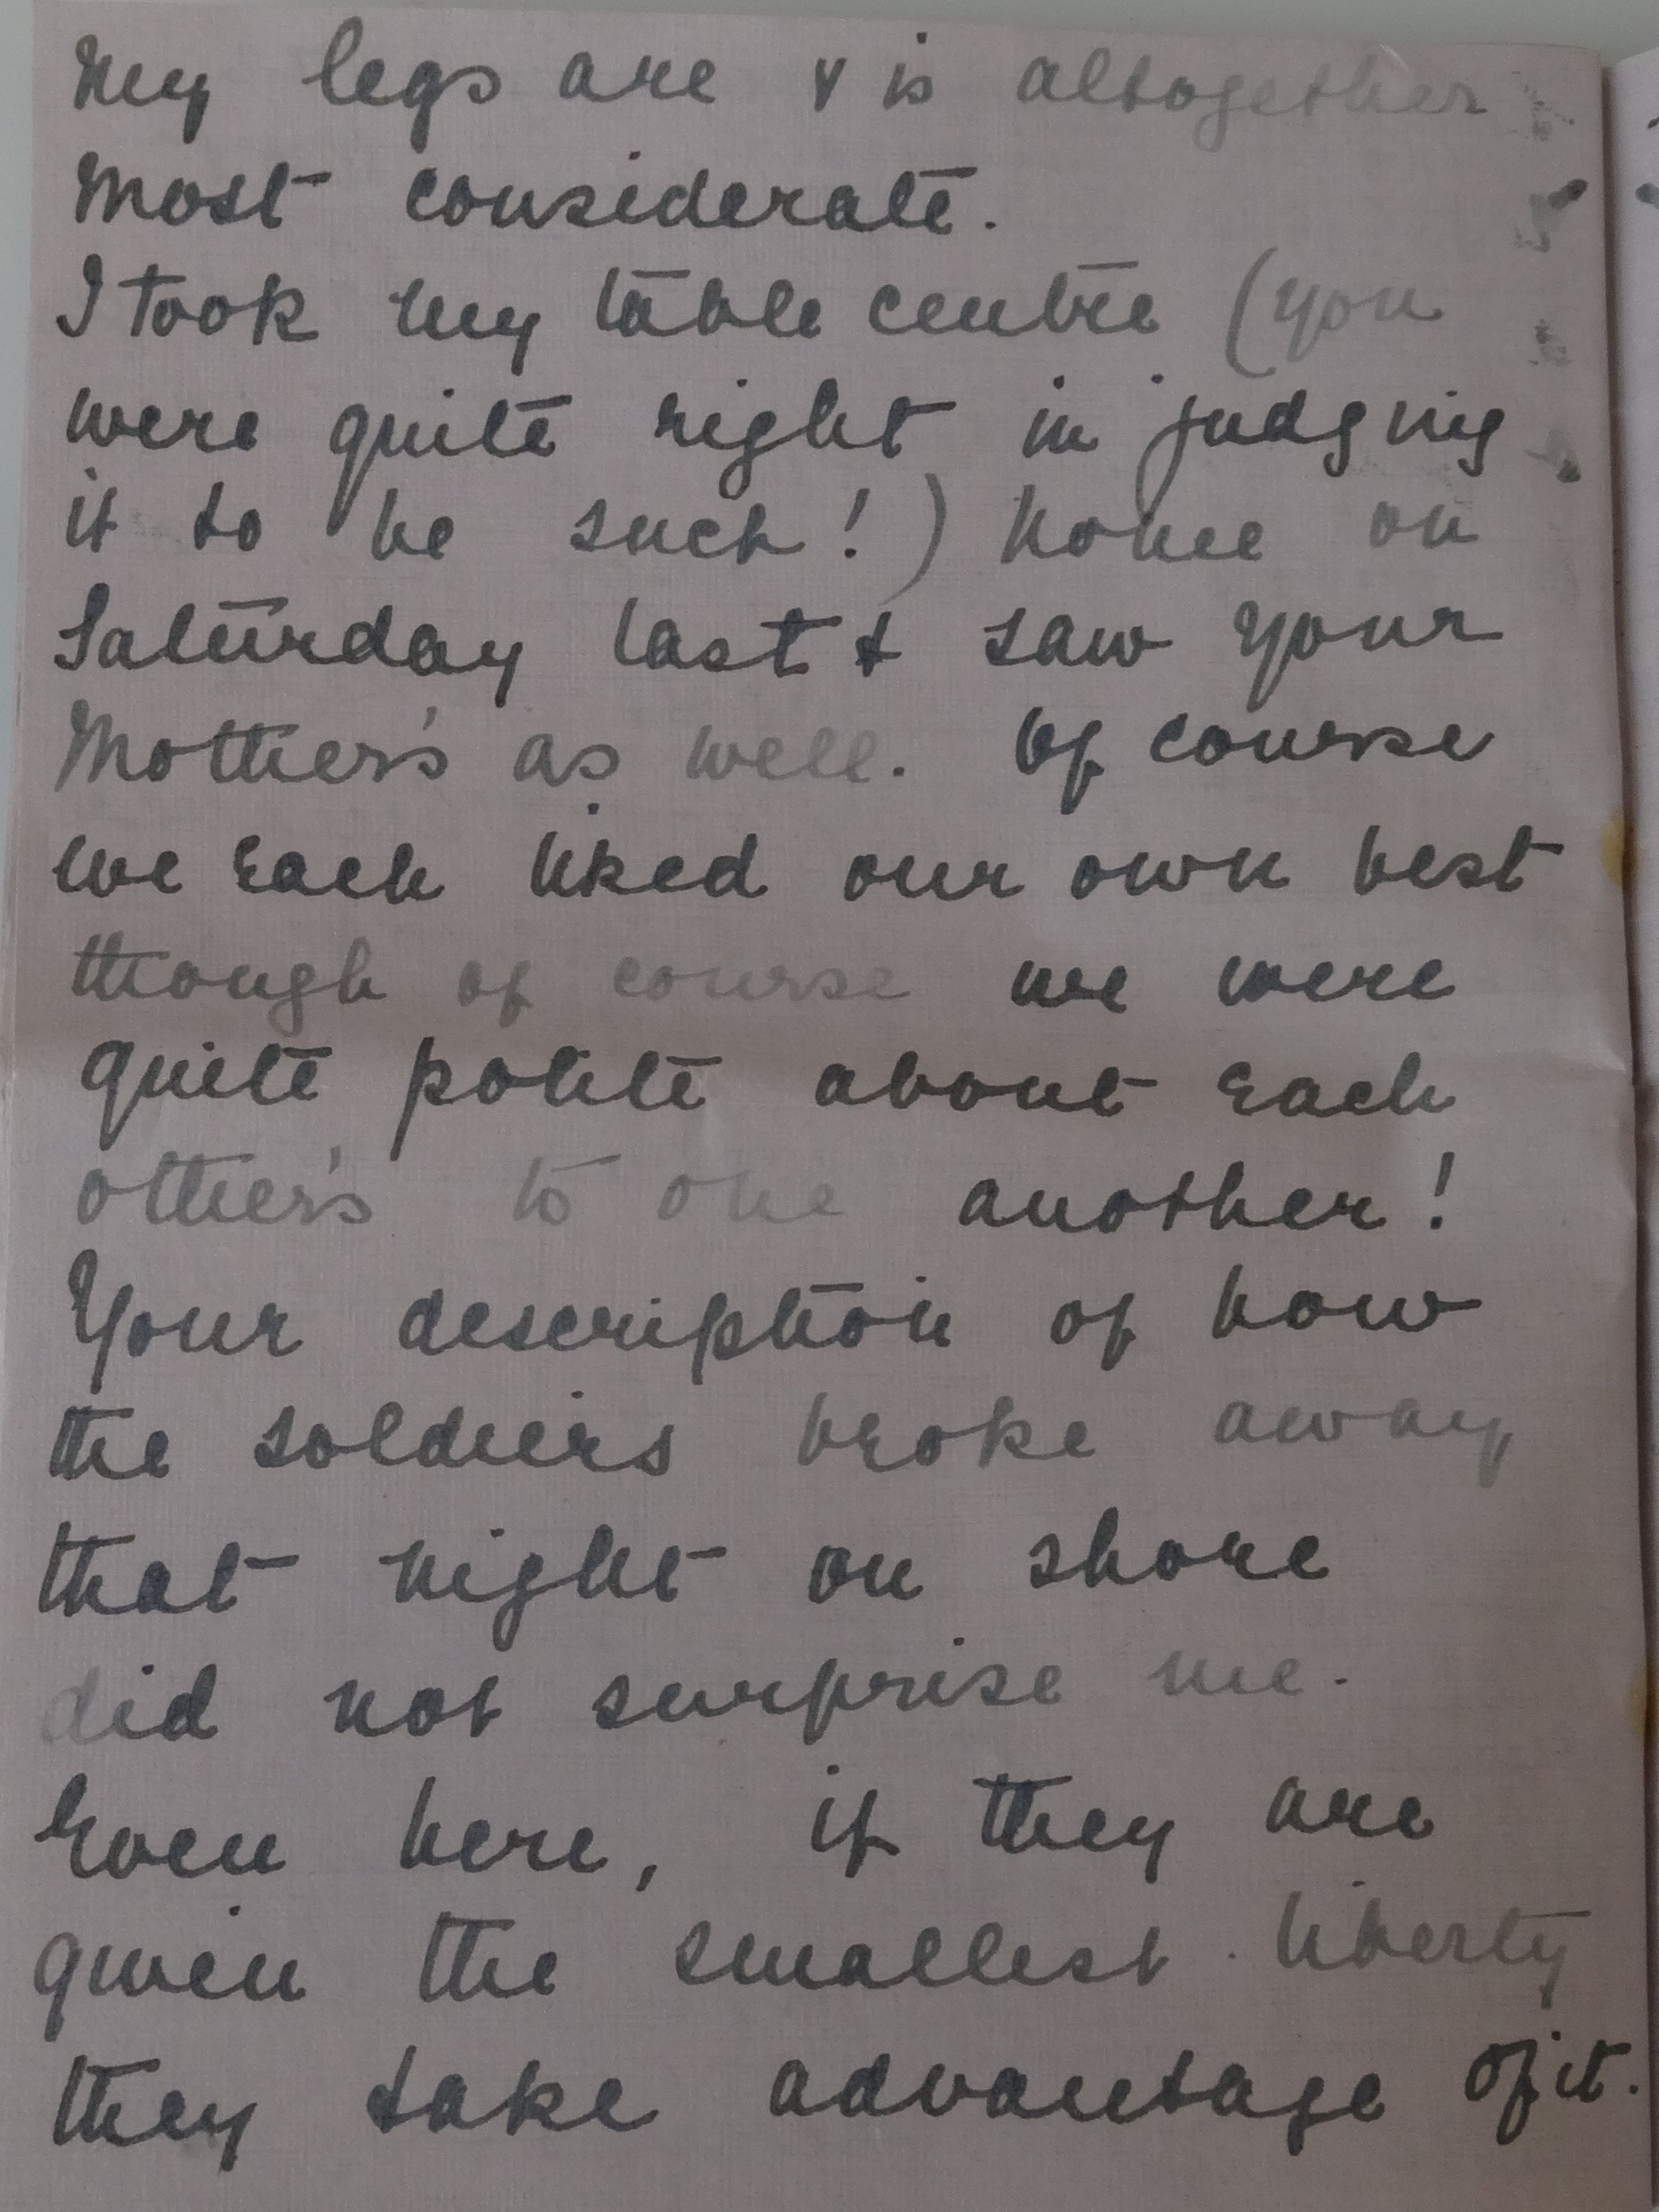 my legs are & is altogether
most considerate.
I took my table centre (you
were quite right in judging
it to be such!) home on
Saturday last & saw your
Mother's as well. Of course
we each liked our own best
though of course we were
quite polite about each
other's to one another!
Your description of how
the soldiers broke away
that night on shore
did not surprise me.
Even here, if they are
given the smallest liberty
they take advantage of it.